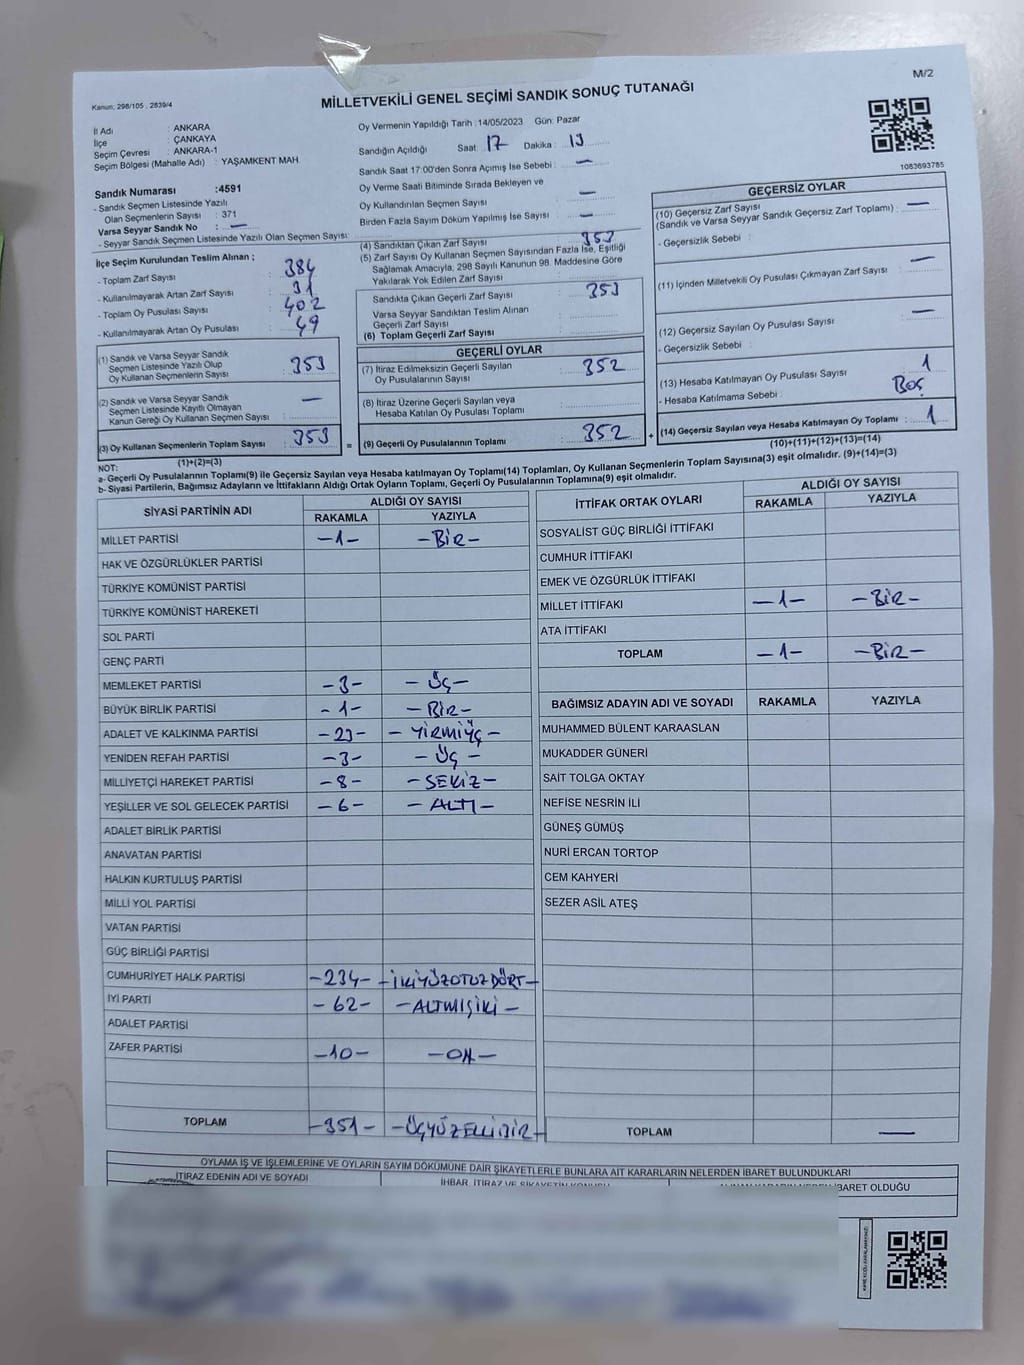 M/2
Kanun: 298/105 , 2839/4
MİLLETVEKİLİ GENEL SEÇİMİ SANDIK SONUÇ TUTANAĞI
İl Adı : ANKARA
İlçe : ÇANKAYA
Seçim Çevresi : ANKARA-1
Seçim Bölgesi (Mahalle Adı) : YAŞAMKENT MAH.
Sandık Numarası :4591
- Sandık Seçmen Listesinde Yazılı
Olan Seçmenlerin Sayısı : 371
Varsa Seyyar Sandık No : —
- Seyyar Sandık Seçmen Listesinde Yazılı Olan Seçmen Sayısı:
Oy Vermenin Yapıldığı Tarih :14/05/2023 Gün: Pazar
Sandığın Açıldığı Saat : 17 Dakika : 13
Sandık Saat 17:00'den Sonra Açımış İse Sebebi : —
Oy Verme Saati Bitiminde Sırada Bekleyen ve
Oy Kullandırılan Seçmen Sayısı : —
Birden Fazla Sayım Döküm Yapılmış İse Sayısı : —
1083693785
İlçe Seçim Kurulundan Teslim Alınan ;
- Toplam Zarf Sayısı : 384
- Kullanılmayarak Artan Zarf Sayısı : 31
- Toplam Oy Pusulası Sayısı : 402
- Kullanılmayarak Artan Oy Pusulası : 49
(1) Sandık ve Varsa Seyyar Sandık
Seçmen Listesinde Yazılı Olup
Oy Kullanan Seçmenlerin Sayısı : 353
(2) Sandık ve Varsa Seyyar Sandık
Seçmen Listesinde Kayıtlı Olmayan
Kanun Gereği Oy Kullanan Seçmen Sayısı : —
(3) Oy Kullanan Seçmenlerin Toplam Sayısı : 353
(1)+(2)=(3)
(4) Sandıktan Çıkan Zarf Sayısı : 353
(5) Zarf Sayısı Oy Kullanan Seçmen Sayısından Fazla İse, Eşitliği
Sağlamak Amacıyla, 298 Sayılı Kanunun 98. Maddesine Göre
Yakılarak Yok Edilen Zarf Sayısı :
Sandıkta Çıkan Geçerli Zarf Sayısı : 353
Varsa Seyyar Sandıktan Teslim Alınan
Geçerli Zarf Sayısı :
(6) Toplam Geçerli Zarf Sayısı :
GEÇERLİ OYLAR
(7) İtiraz Edilmeksizin Geçerli Sayılan
Oy Pusulalarının Sayısı : 352
(8) İtiraz Üzerine Geçerli Sayılan veya
Hesaba Katılan Oy Pusulası Toplamı :
= (9) Geçerli Oy Pusulalarının Toplamı : 352 +
GEÇERSİZ OYLAR
(10) Geçersiz Zarf Sayısı
(Sandık ve Varsa Seyyar Sandık Geçersiz Zarf Toplamı) : —
- Geçersizlik Sebebi :
(11) İçinden Milletvekili Oy Pusulası Çıkmayan Zarf Sayısı : —
(12) Geçersiz Sayılan Oy Pusulası Sayısı : —
- Geçersizlik Sebebi :
(13) Hesaba Katılmayan Oy Pusulası Sayısı : 1
- Hesaba Katılmama Sebebi : Boş
(14) Geçersiz Sayılan veya Hesaba Katılmayan Oy Toplamı : 1
(10)+(11)+(12)+(13)=(14)
NOT:
a- Geçerli Oy Pusulalarının Toplamı(9) ile Geçersiz Sayılan veya Hesaba katılmayan Oy Toplamı(14) Toplamları, Oy Kullanan Seçmenlerin Toplam Sayısına(3) eşit olmalıdır. (9)+(14)=(3)
b- Siyasi Partilerin, Bağımsız Adayların ve İttifakların Aldığı Ortak Oyların Toplamı, Geçerli Oy Pusulalarının Toplamına(9) eşit olmalıdır.
SİYASİ PARTİNİN ADI ALDIĞI OY SAYISI
RAKAMLA YAZIYLA
MİLLET PARTİSİ -1- -BİR-
HAK VE ÖZGÜRLÜKLER PARTİSİ
TÜRKİYE KOMÜNİST PARTİSİ
TÜRKİYE KOMÜNİST HAREKETİ
SOL PARTİ
GENÇ PARTİ
MEMLEKET PARTİSİ -3- -ÜÇ-
BÜYÜK BİRLİK PARTİSİ -1- -BİR-
ADALET VE KALKINMA PARTİSİ -23- -YİRMİÜÇ-
YENİDEN REFAH PARTİSİ -3- -ÜÇ-
MİLLİYETÇİ HAREKET PARTİSİ -8- -SEKİZ-
YEŞİLLER VE SOL GELECEK PARTİSİ -6- -ALTI-
ADALET BİRLİK PARTİSİ
ANAVATAN PARTİSİ
HALKIN KURTULUŞ PARTİSİ
MİLLİ YOL PARTİSİ
VATAN PARTİSİ
GÜÇ BİRLİĞİ PARTİSİ
CUMHURİYET HALK PARTİSİ -234- -İKİYÜZOTUZDÖRT-
İYİ PARTİ -62- -ALTMIŞİKİ-
ADALET PARTİSİ
ZAFER PARTİSİ -10- -ON-
TOPLAM -351- -ÜÇYÜZELLİBİR-
İTTİFAK ORTAK OYLARI ALDIĞI OY SAYISI
RAKAMLA YAZIYLA
SOSYALİST GÜÇ BİRLİĞİ İTTİFAKI
CUMHUR İTTİFAKI
EMEK VE ÖZGÜRLÜK İTTİFAKI
MİLLET İTTİFAKI -1- -BİR-
ATA İTTİFAKI
TOPLAM -1- -BİR-
BAĞIMSIZ ADAYIN ADI VE SOYADI RAKAMLA YAZIYLA
MUHAMMED BÜLENT KARAASLAN
MUKADDER GÜNERİ
SAİT TOLGA OKTAY
NEFİSE NESRİN İLİ
GÜNEŞ GÜMÜŞ
NURİ ERCAN TORTOP
CEM KAHYERİ
SEZER ASİL ATEŞ
TOPLAM —
OYLAMA İŞ VE İŞLEMLERİNE VE OYLARIN SAYIM DÖKÜMÜNE DAİR ŞİKAYETLERLE BUNLARA AİT KARARLARIN NELERDEN İBARET BULUNDUKLARI
İTİRAZ EDENİN ADI VE SOYADI İHBAR, İTİRAZ VE ŞİKAYETİN KONUSU İBARET OLDUĞU